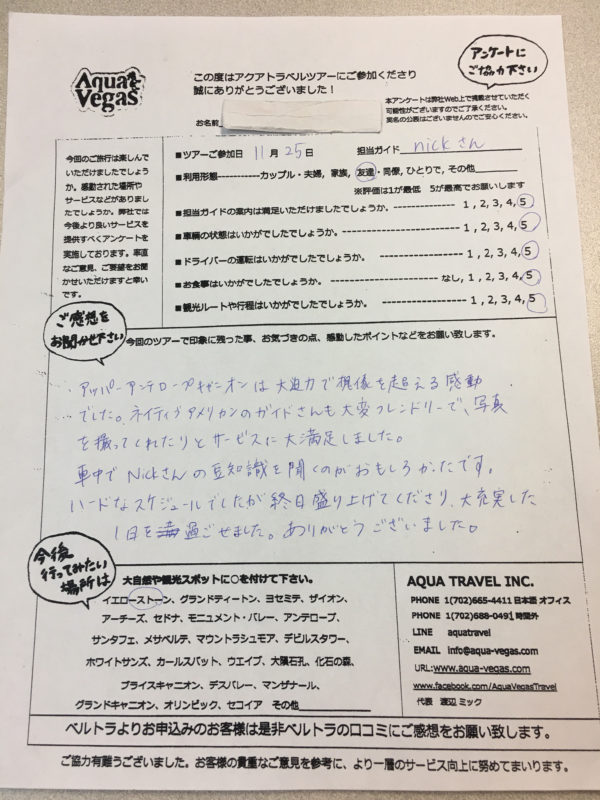 Aqua Vegas
この度はアクアトラベルツアーにご参加くださり
誠にありがとうございました！
アンケートに
ご協力下さい
お名前
本アンケートは弊社Web上で掲載させていただく
可能性がございますのでご了承ください。
実名の公表はございませんのでご安心ください。
今回のご旅行は楽しんで
いただけましたでしょう
か。感動された場所や
サービスなどがありまし
たでしょうか。弊社では
今後より良いサービスを
提供すべくアンケートを
実施しております。率直
なご意見、ご要望をお聞
かせいただけますと幸い
です。
■ツアーご参加日 11月25日 担当ガイド nickさん
■利用形態-----------カップル・夫婦, 家族, 友達・同僚, ひとりで, その他
※評価は1が最低 5が最高でお願いします
■担当ガイドの案内は満足いただけましたでしょうか。 ---------- 1, 2, 3, 4, 5
■車輌の状態はいかがでしたでしょうか。 ---------------- 1, 2, 3, 4, 5
■ドライバーの運転はいかがでしたでしょうか。 -------------- 1, 2, 3, 4, 5
■お食事はいかがでしたでしょうか。 ---------------- なし, 1, 2, 3, 4, 5
■観光ルートや行程はいかがでしたでしょうか。 -------------- 1, 2, 3, 4, 5
ご感想を
お聞かせ下さい
今回のツアーで印象に残った事、お気づきの点、感動したポイントなどをお願い致します。
アッパーアンテロープキャニオンは大迫力で想像を超える感動
でした。ネイティブアメリカンのガイドさんも大変フレンドリーで、写真
を撮ってくれたりとサービスに大満足しました。
車中でNickさんの豆知識を聞くのがおもしろかったです。
ハードなスケジュールでしたが終日盛り上げてくださり、大充実した
1日を過ごせました。ありがとうございました。
今後
行ってみたい
場所は
大自然や観光スポットに○を付けて下さい。
イエローストーン、グランドティートン、ヨセミテ、ザイオン、
アーチーズ、セドナ、モニュメント・バレー、アンテロープ、
サンタフェ、メサベルデ、マウントラシュモア、デビルスタワー、
ホワイトサンズ、カールスバット、ウエイブ、大隕石孔、化石の森、
ブライスキャニオン、デスバレー、マンザナール、
グランドキャニオン、オリンピック、セコイア その他
AQUA TRAVEL INC.
PHONE 1(702)665-4411 日本語 オフィス
PHONE 1(702)688-0491 時間外
LINE aquatravel
EMAIL info@aqua-vegas.com
URL:www.aqua-vegas.com
www.facebook.com/AquaVegasTravel
代表 渡辺 ミック
ベルトラよりお申込みのお客様は是非ベルトラの口コミにご感想をお願い致します。
ご協力有難うございました。お客様の貴重なご意見を参考に、より一層のサービス向上に努めてまいります。